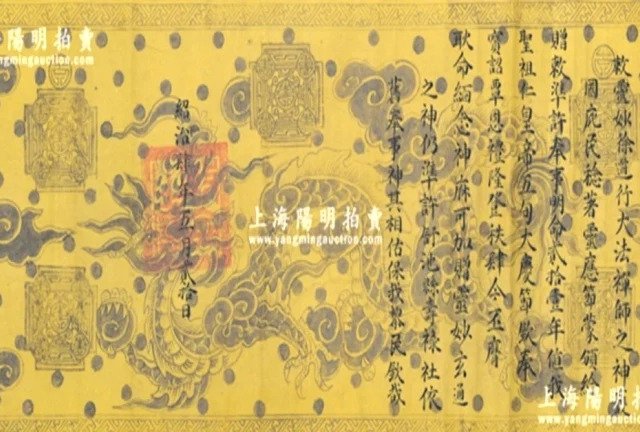 敕靈妙徐道行大法禪師之神
国庇民稔著靈應節蒙頒給
贈敕準許奉事明命貳拾壹年值我
聖祖仁皇帝五旬大慶節欽奉
寳詔覃恩禮隆登秩肆今丕膺
耿命緬念神庥可加贈靈妙玄通
之神仍準許舒池縣祿社依
舊奉事神其相佑保我黎民欽哉
紹治年五月貳拾日
上海陽明拍賣
www.yangmingauction.com
上海陽明拍賣
www.yangmingauction.com
上海陽明拍
www.yangmingauction.c